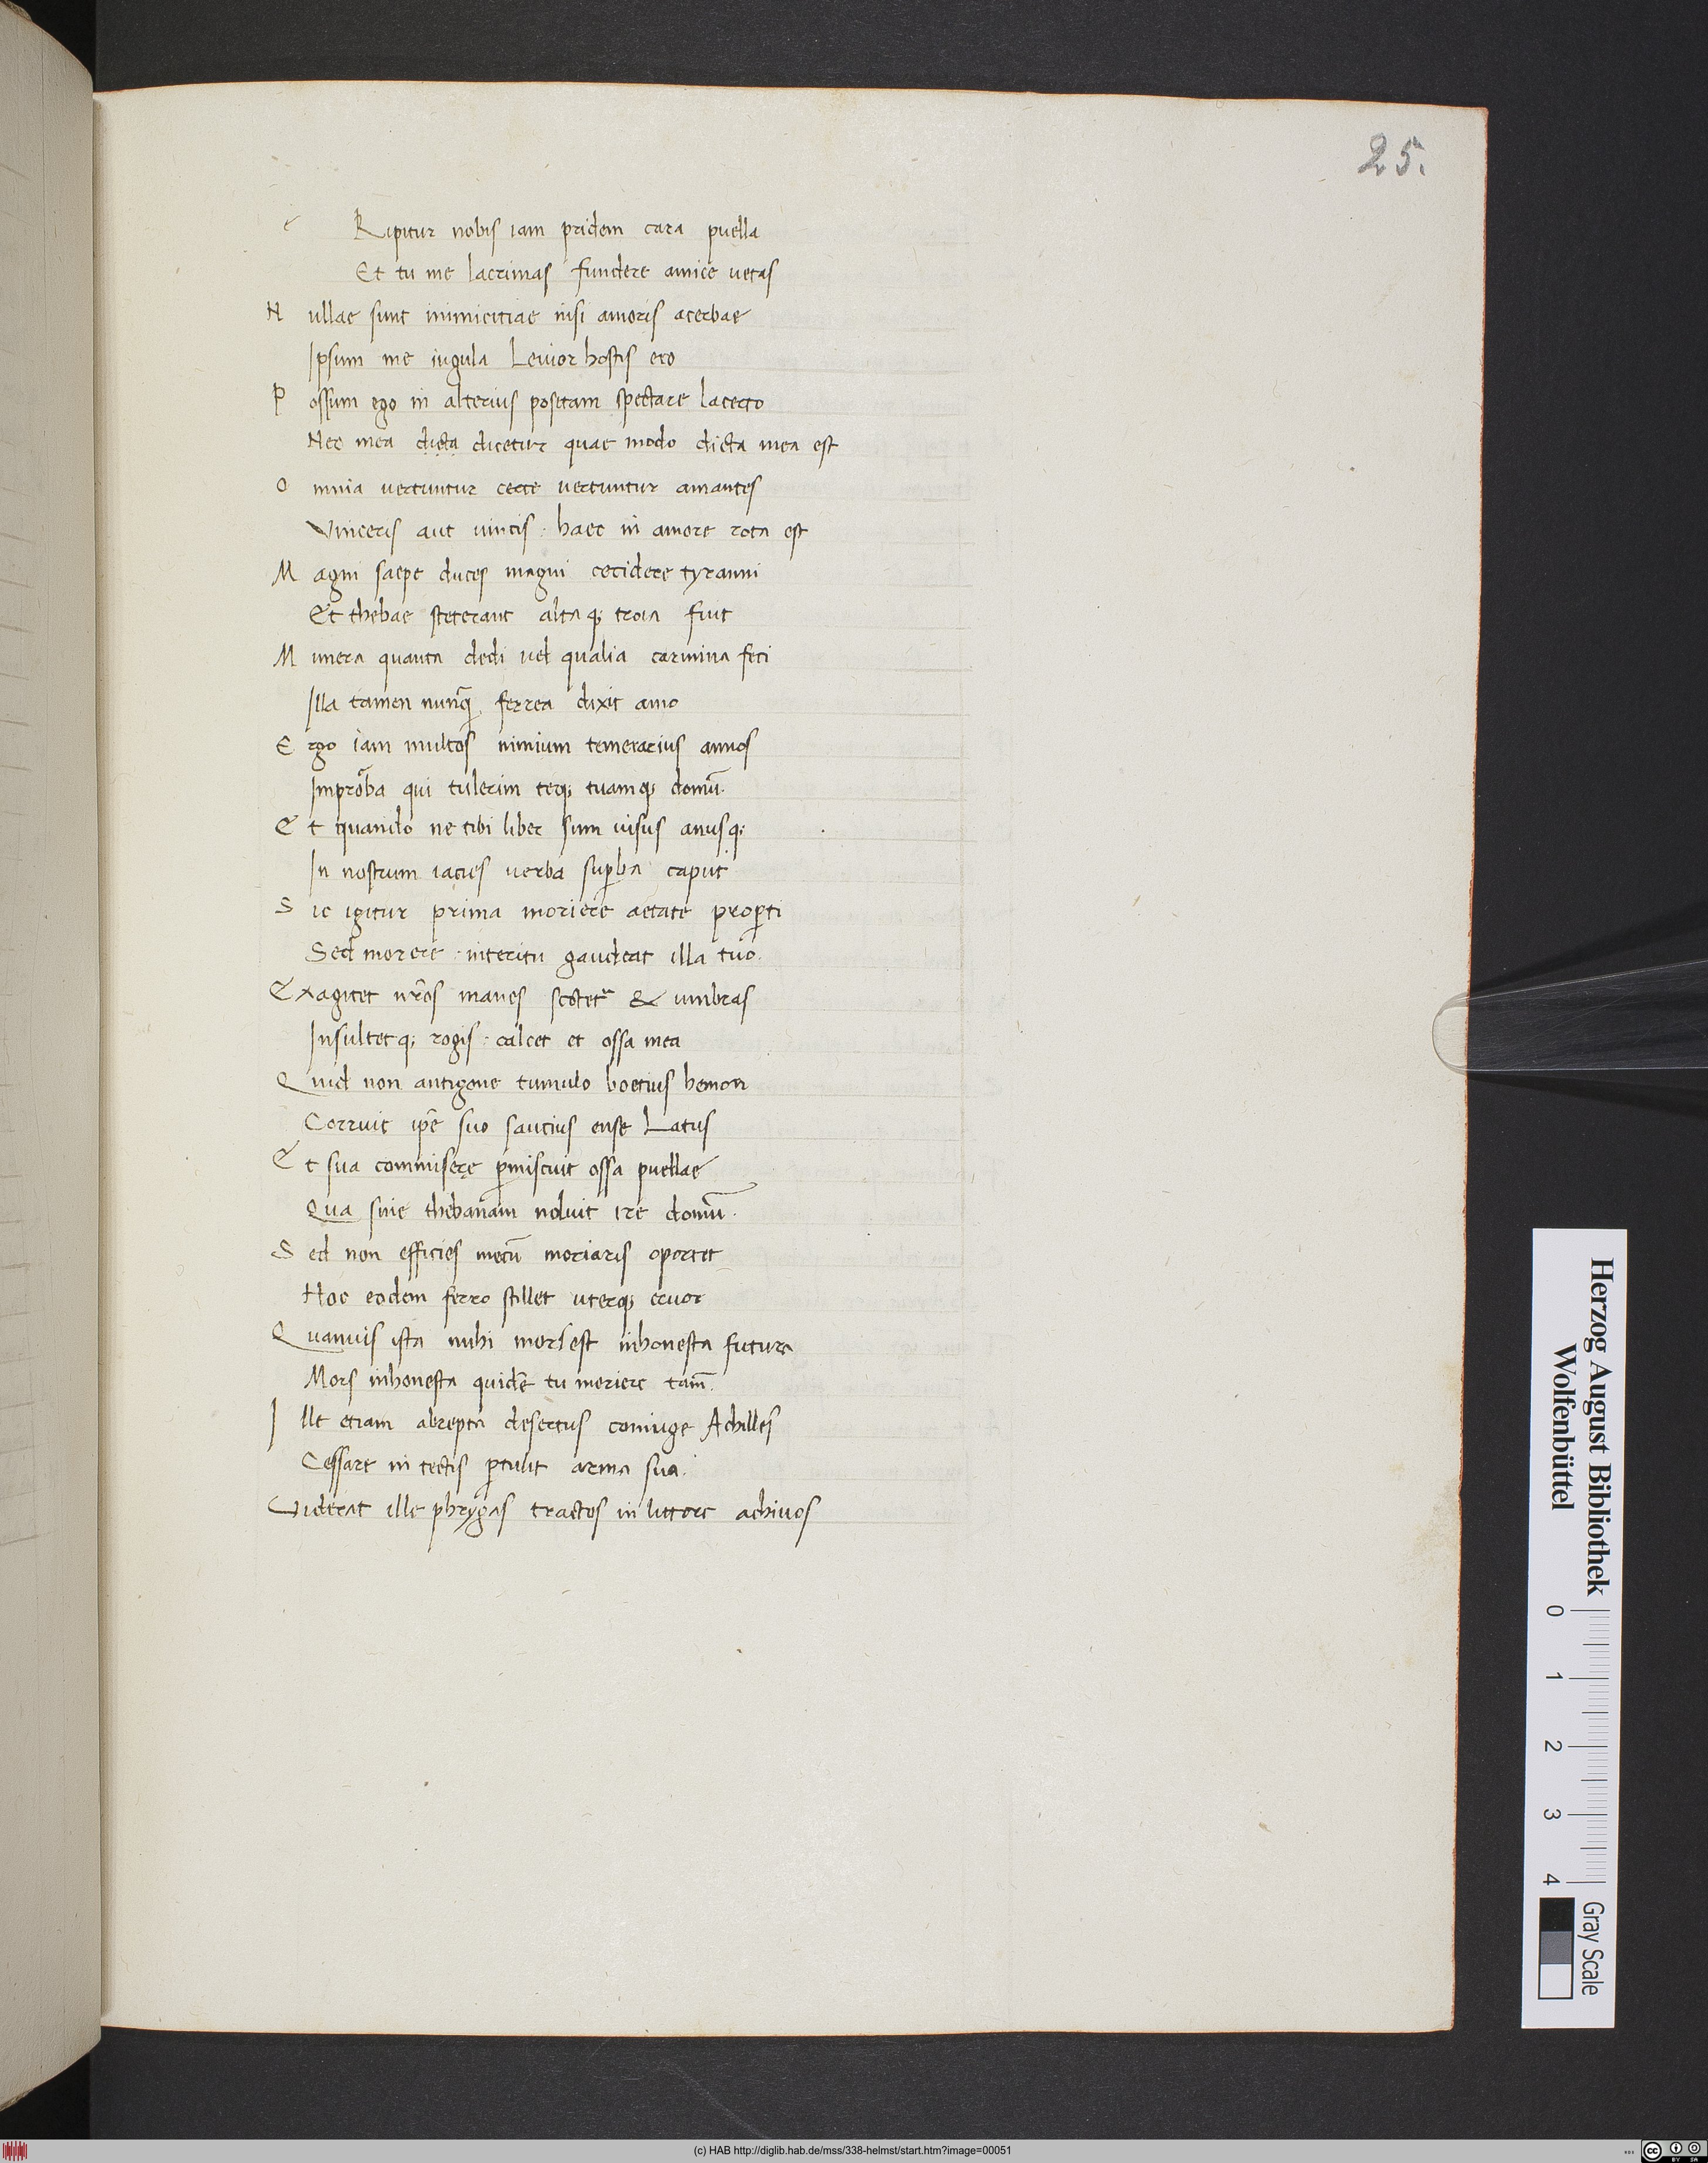 25.
e Ripitur nobis iam pridem cara puella
Et tu me lacrimas fundere amice uetas
N ullae sunt inimicitiae nisi amoris acerbae
Ipsum me iugula Leuior hostis ero
P ossum ego in alterius positam spectare lacerto
Nec mea dicta dicetur quae modo dicta mea est
O mnia uertuntur certe uertuntur amantes
Vinceris aut uincis : haec in amore rota est
M agni saepe duces magni cecidere tyranni
Et thebae steterant altaq; troia fuit
M unera quanta dedi uel qualia carmina feci
Illa tamen nunq̃ ferrea dixit amo
E rgo iam multos nimium temerarius annos
Improba qui tulerim teq; tuamq; domũ.
E t quando ne tibi liber sum uisus anusq;
In nostrum iacies uerba sup̱ba caput
S ic igitur prima moriere aetate prop̱ti
Sed morere : interitu gaudeat illa tuo.
Exagitet nr̃os manes sectet᷑ & umbras
Insultetq; rogis : calcet et ossa mea
Quid non antigone tumulo boetius hemon
Corruit ip̃e suo saucius ense Latus
E t sua commisere p̱miscuit ossa puellae
Qua sine thebanam noluit ire domũ.
S ed non efficies mecũ moriaris oportet
Hoc eodem ferro stillet uterq; cruor
Q uanuis ista mihi mors est inhonesta futura
Mors inhonesta quidẽ tu moriere tam̃.
I lle etiam abrepta desertus coniuge Achilles
Cessare in tectis p̱tulit arma sua.
Viderat ille phrygas tractos in littore achiuos
Herzog August Bibliothek
Wolfenbüttel
0 1 2 3 4
Gray Scale
(c) HAB http://diglib.hab.de/mss/338-helmst/start.htm?image=00051
cc BY SA